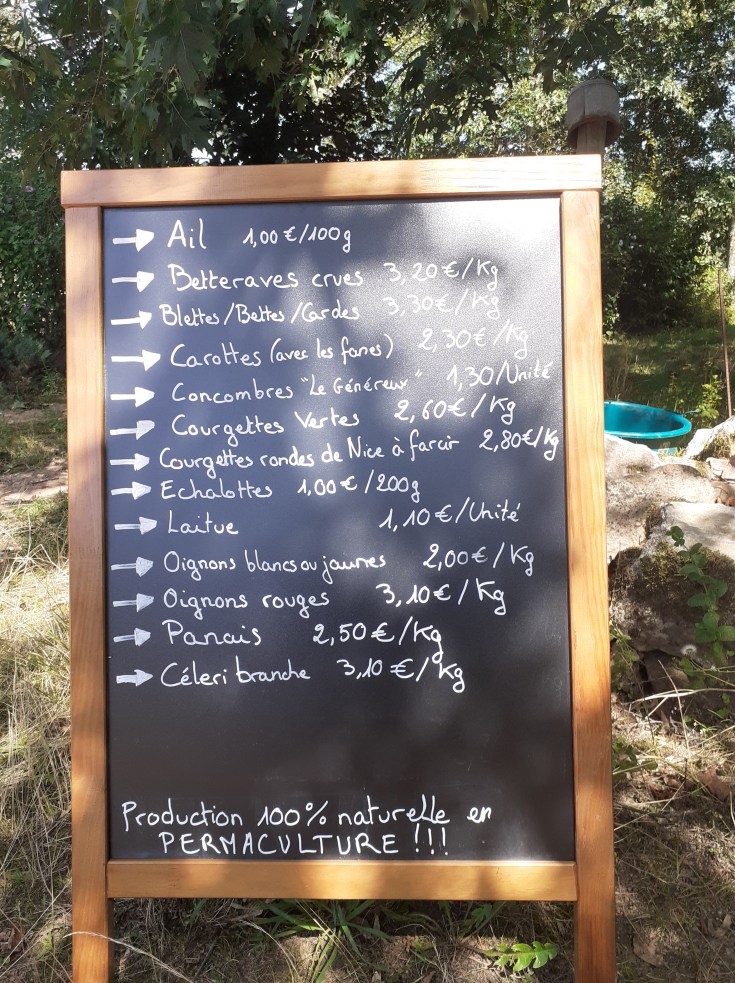 → Ail 1,00€/100g
→ Betteraves crues 3,20€/Kg
→ Blettes/Bettes/Cardes 3,30€/Kg
→ Carottes (avec les fanes) 2,30€/Kg
→ Concombres "Le Généreux" 1,30/Unité
→ Courgettes Vertes 2,60€/Kg
→ Courgettes rondes de Nice à farcir 2,80€/Kg
→ Echalottes 1,00€/200g
→ Laitue 1,10€/Unité
→ Oignons blancs ou jaunes 2,00€/Kg
→ Oignons rouges 3,10€/Kg
→ Panais 2,50€/Kg
→ Céleri branche 3,10€/Kg
Production 100% naturelle en
PERMACULTURE !!!